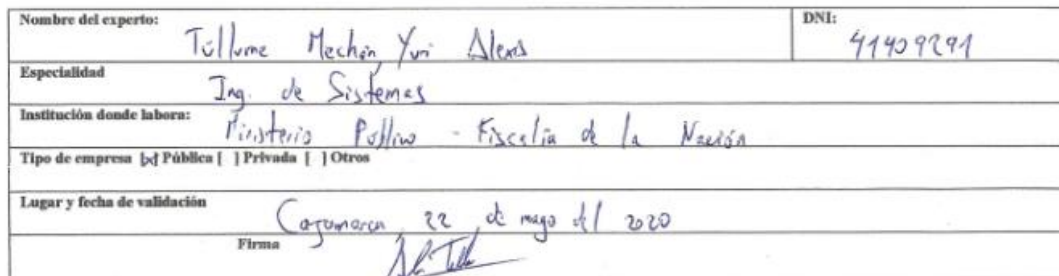 Nombre del experto:
Túllume Mechán, Yuri Alexis
DNI:
41409291
Especialidad
Ing. de Sistemas
Institución donde labora:
Ministerio Público - Fiscalía de la Nación
Tipo de empresa [x] Pública [ ] Privada [ ] Otros
Lugar y fecha de validación
Cajamarca, 22 de mayo del 2020
Firma